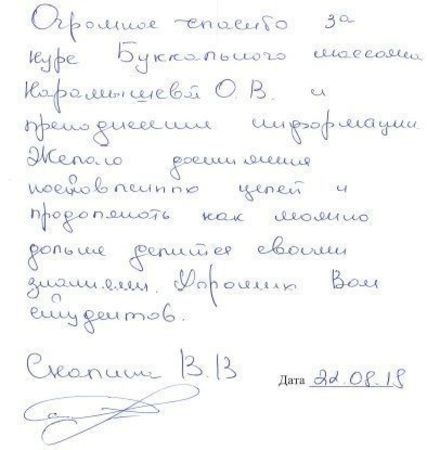 Огромное спасибо за
курс Буккального массажа
Карамышевой О.В. и
преподнесении информации
Желаю достижения
поставленных целей и
продолжать как можно
дольше делится своими
знаниями. Хороших Вам
студентов.
Скапина В.В
Дата 22.08.19